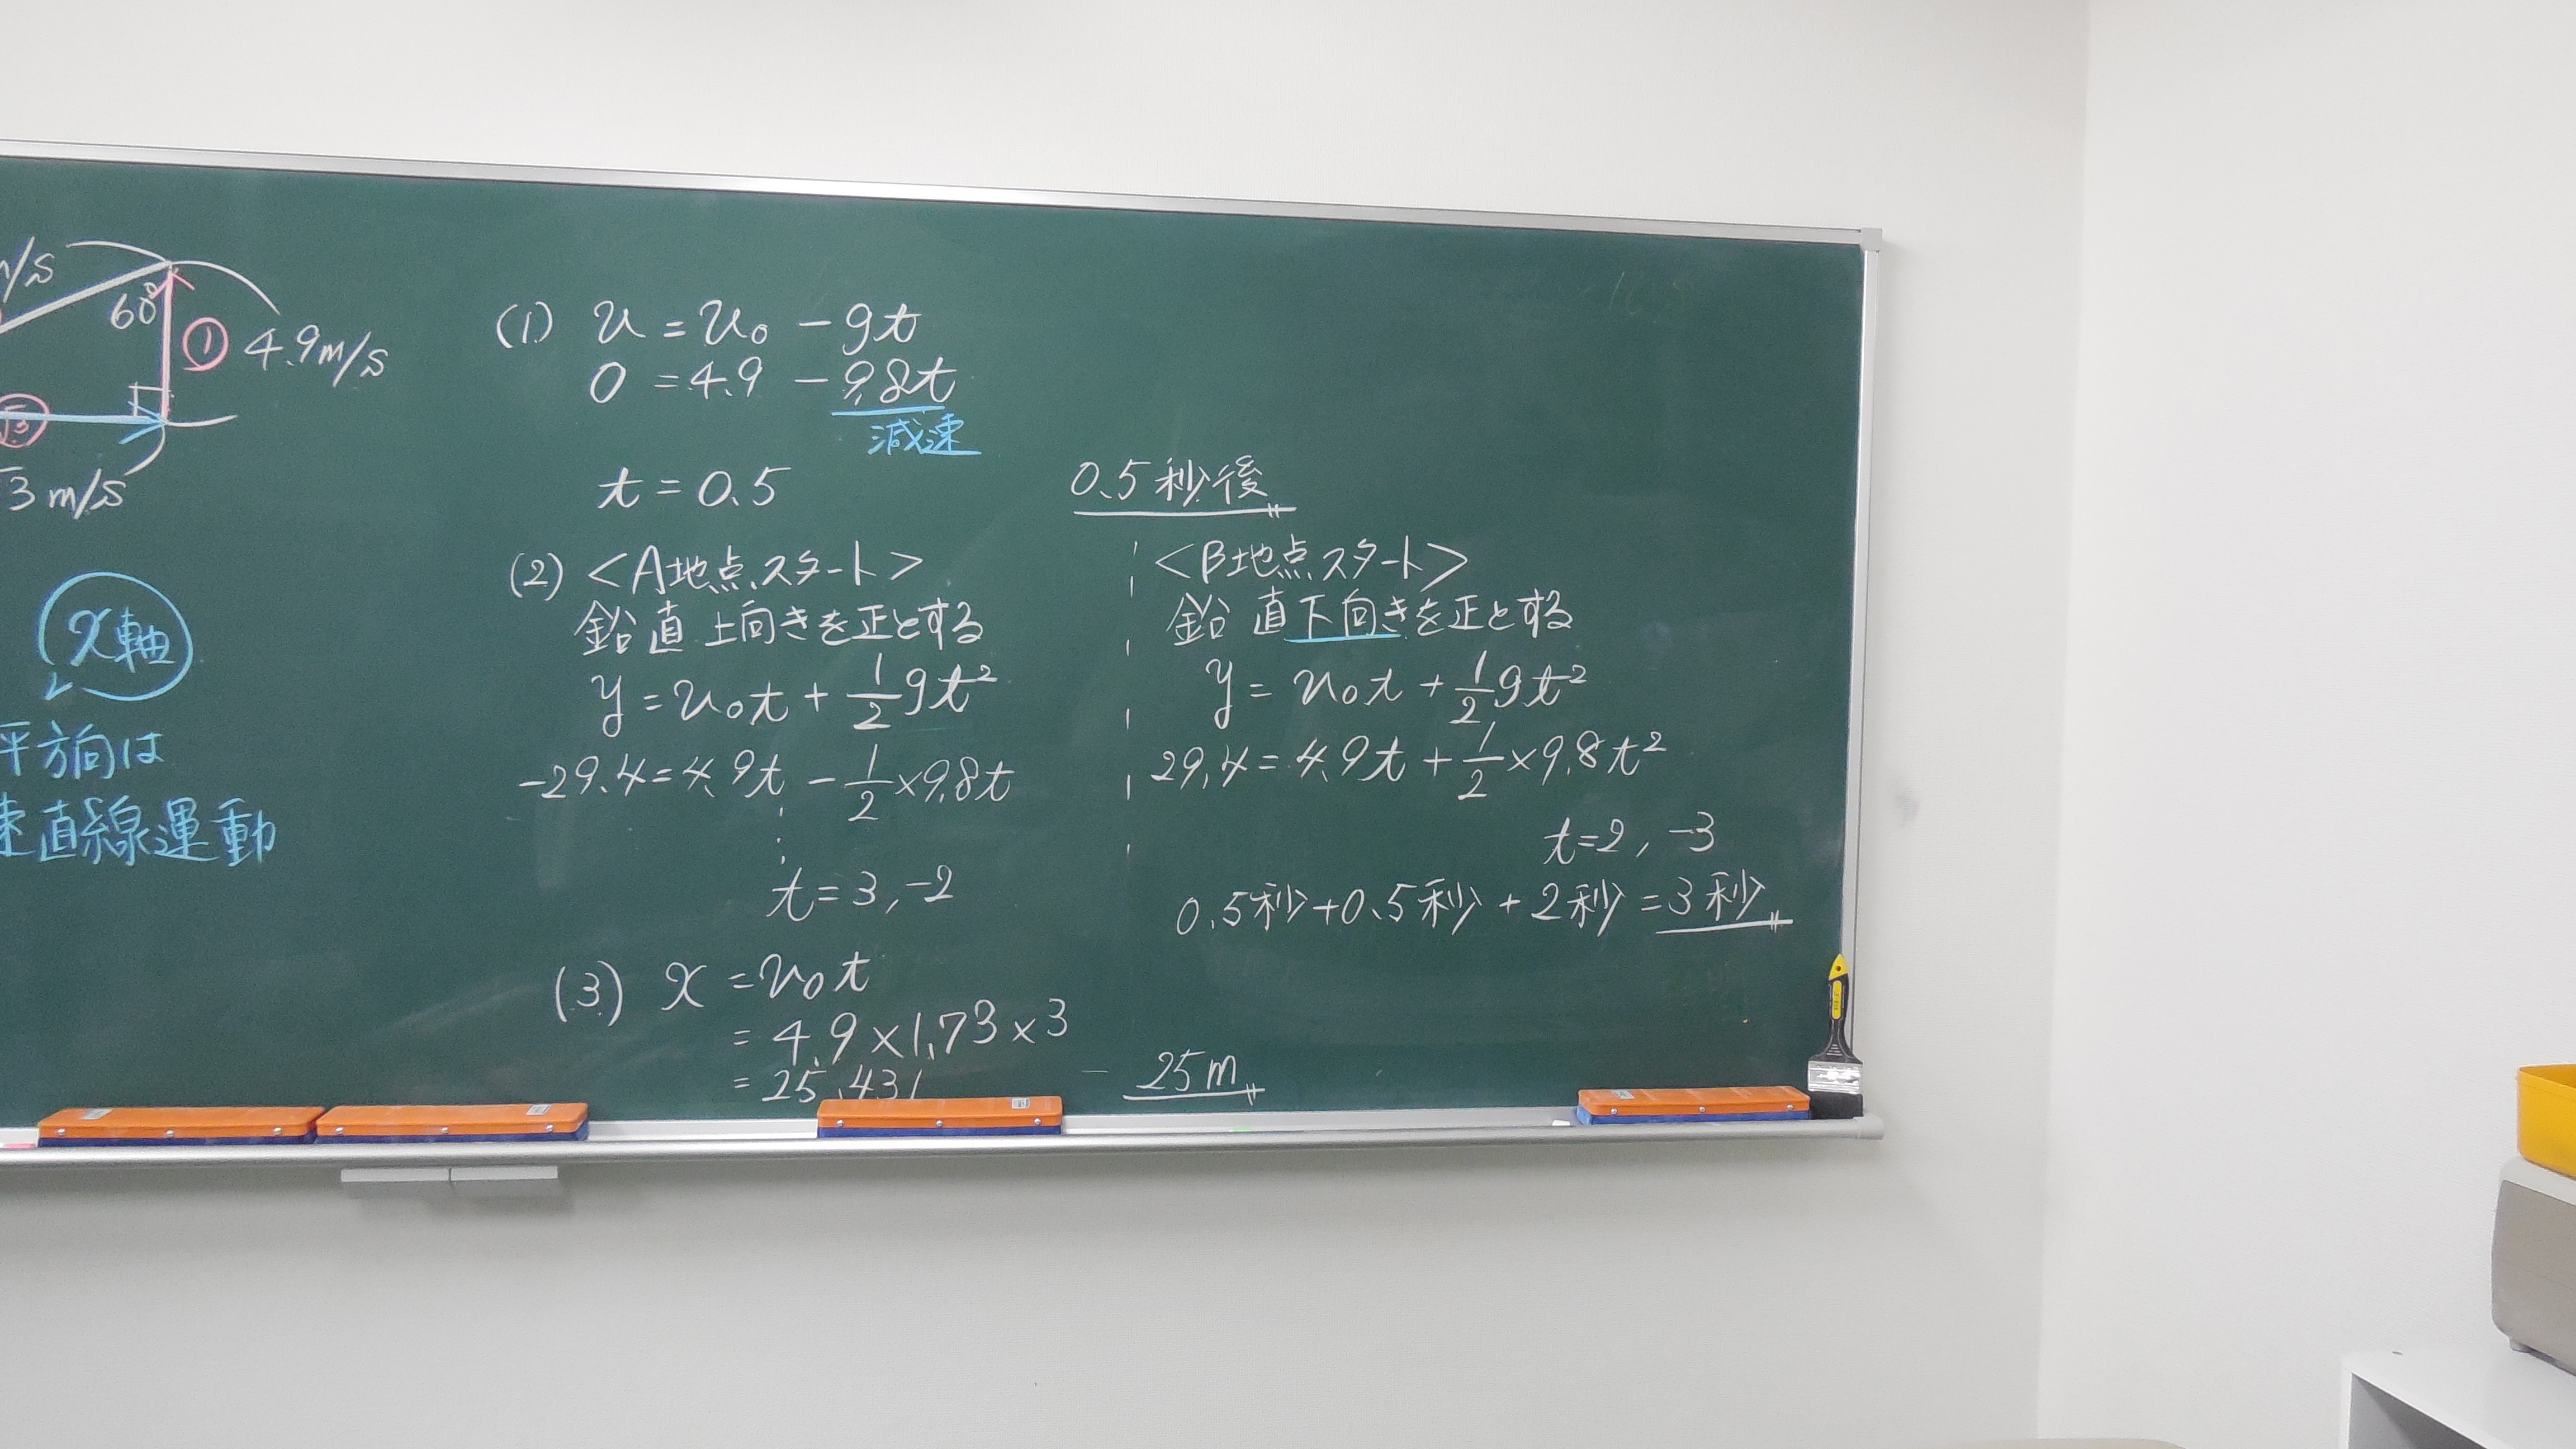 m/s
60°
① 4.9m/s
√3
√3 m/s
x軸
平方向は
速直線運動
(1) v = v₀ - gt
0 = 4.9 - 9.8t
減速
t = 0.5
0.5秒後
(2) <A地点スタート>
鉛直上向きを正とする
y = v₀t + 1/2 gt²
-29.4 = 4.9t - 1/2 × 9.8t
⋮
t = 3, -2
<B地点スタート>
鉛直下向きを正とする
y = v₀t + 1/2 gt²
29.4 = 4.9t + 1/2 × 9.8t²
t = 2, -3
0.5秒 + 0.5秒 + 2秒 = 3秒
(3) x = v₀t
= 4.9 × 1.73 × 3
= 25.431
25m